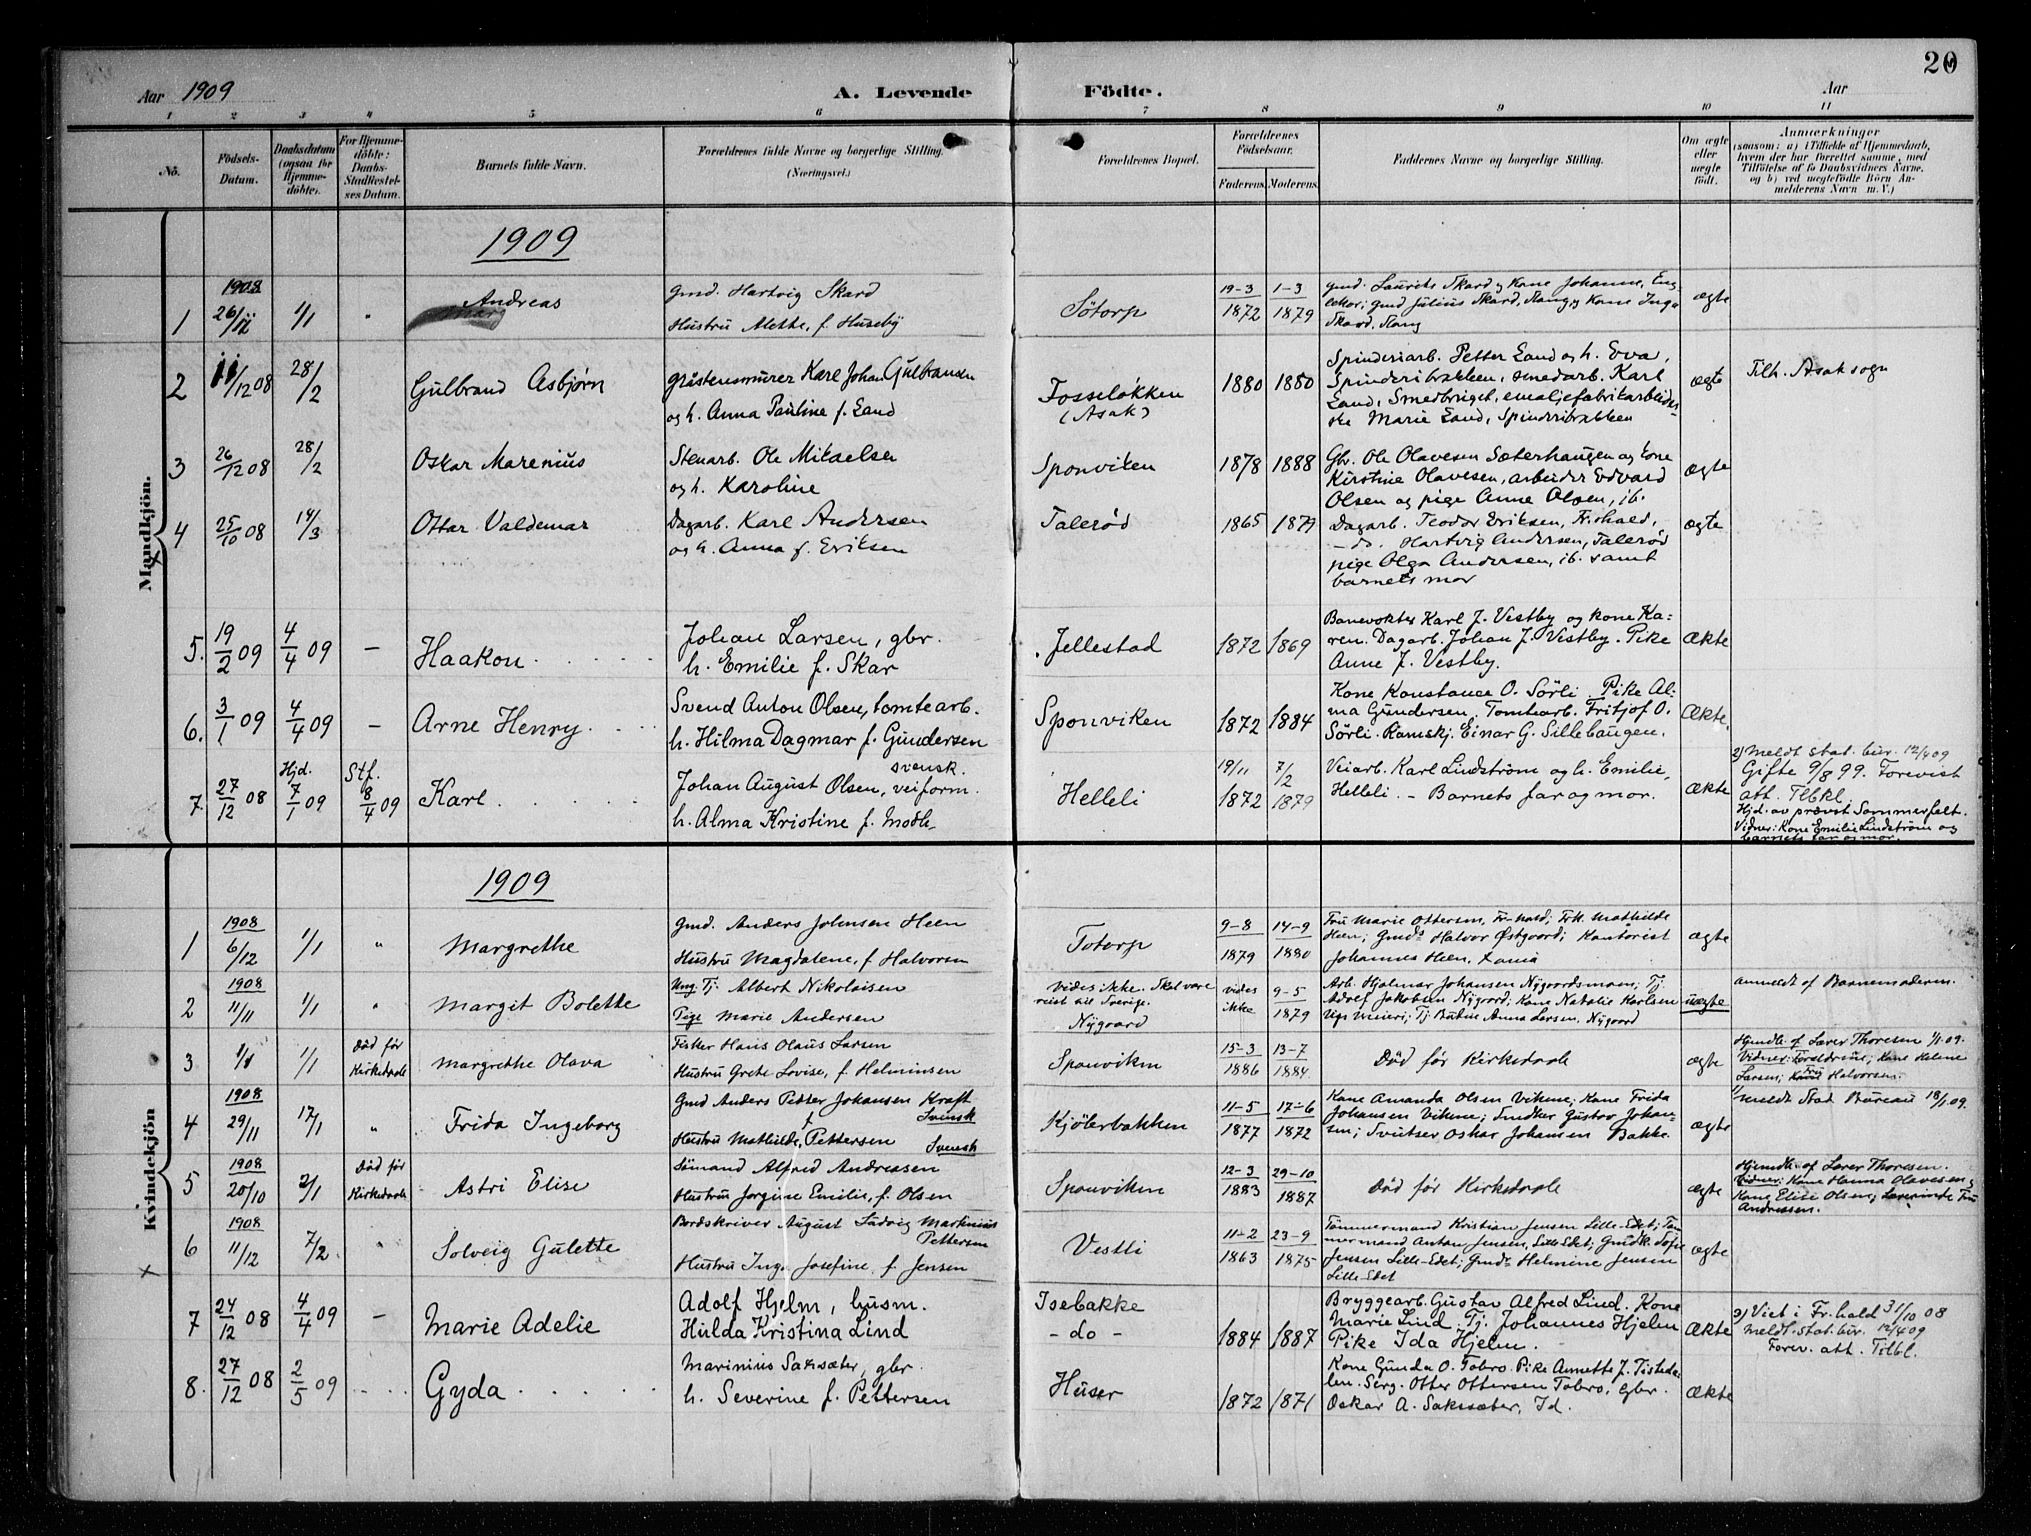 20
Aar 1909
A. Levende Födte.
Aar
1 2 3 4 5 6 7 8 9 10 11
No.
Födsels-
Datum.
Daabsdatum
(ogsaa for
Hjemme-
döbte).
For Hjemme-
döbte:
Daabs-
Stadfæstel-
ses Datum.
Barnets fulde Navn.
Forældrenes fulde Navne og borgerlige Stilling.
(Næringsvei.)
Forældrenes Bopæl.
Forældrenes
Födselsaar.
Faderens. Moderens.
Faddernes Navne og borgerlige Stilling.
Om ægte
eller
uægte
født.
Anmærkninger
(saasom: a) i Tilfælde af Hjemmedaab,
hvem der har forrettet samme, med
Tilföielse af to Daabsvidners Navne,
og b) ved uægtefödte Börn An-
melderens Navn m. V.)
Mandkjön.
1909
1 1908 26/12 1/1 " Andreas
Gmd. Hartvig Skard
Hustru Alette, f. Huseby
Søtorp
19-3 1872 1-3 1879
gmd. Laurits Skard og Kone Johanne, Eng-
lekor; gmd Julius Skard, Stang og Kone Inga
Skard, Stang
ægte
2 11/12 08 28/2 Gulbrand Asbjørn
gråstensmurer Karl Johan Gulbransen
og h. Anna Pauline f. Land
Fosseløkken
(Asak)
1880 1880
Spinderiarb. Petter Land og h. Eva,
Spinderibakken, smedarb. Karl
Land, Smedbriget, emaljefabrikarbeider-
ske Marie Land, Spinderibakken
ægte
Tilh. Asak sogn
3 26/12 08 28/2 Oskar Marenius
Stenarb. Ole Mikaelsen
og h. Karoline
Sponviken
1878 1888
Gbr. Ole Olavesen Sæterhaugen og kone
Kirstine Olavesen, arbeider Edvard
Olsen og pige Anne Olsen, ib.
ægte
4 25/10 08 14/3 Ottar Valdemar
Dagarb. Karl Andersen
og h. Anna f. Eriksen
Talerød
1865 1879
Dagarb. Teodor Eriksen, Fr.hald,
- do. Hartvig Andersen, Talerød
pige Olga Andersen, ib. samt
barnets mor
ægte
5. 19/2 09 4/4 09 – Haakon
Johan Larsen, gbr.
h. Emilie f. Skar
Jellestad
1872 1869
Banevokter Karl J. Vestby og kone Ka-
ren. Dagarb. Johan J. Vestby. Pike
Anne J. Vestby.
Ækte
6. 3/1 09 4/4 09 – Arne Henry
Svend Anton Olsen, tomtearb.
h. Hilma Dagmar f. Gundersen
Sponviken
1872 1884
Kone Konstance O. Sörli. Pike Al-
ma Gundersen, Tomtearb. Fritjof O.
Sörli. Kamskj. Einar G. Sillebaugen.
Ækte
7. 27/12 08 Hjd. 7/1 09 Stf. 8/4 09 Karl
svensk.
Johan August Olsen, veiform.
h. Alma Kristine f. Modh
Helleli
19/11 1872 7/2 1879
Veiarb. Karl Lindström og h. Emilie,
Helleli. – Barnets far og mor.
ækte
2) Meldt stat. bür. 12/4 09
Gifte 9/8 99. Forevist
att. Tlbkl.
Hjd. av provst Sommerfelt.
Vidner: Kone Emilie Lindström og
barnets far og mor.
Kvindekjön
1909
1 1908 6/12 1/1 " Margrethe
Gmd. Anders Johnsen Heen
Hustru Magdalene, f Halvorsen
Totorp
9-8 1879 14-9 1880
Fru Marie Ottersen, Fr-hald; Frk. Mathilde
Heen; Gmds Halvor Østgaard; Kantorist
Johannes Heen,
ægte
2 1908 11/11 1/1 " Margit Bolette
Ung. Tj. Albert Nikolaisen
Pige Marie Andersen
vides ikke. Skal være
reist til Sverige.
Nygaard
vides ikke 9-5 1879
Arb. Hjalmar Johansen Nygaardsmoen; Tj.
Adolf Jakobsen Nygaard; Kone Natalie Karlsen
Anna Larsen, Nygaard
uægte
anmeldt af Barnemoderen.
3 1/1 1/1 Död før Kirkedaab Margrethe Olava
Fisker Hans Olaus Larsen
Hustru Grete Lovise, f Helminsen
Sponviken
15-3 1886 13-7 1884
Död før Kirkedaab
ægte
Hjmdb. af Lærer Thoresen 1/1 09.
Vidner: Forældrene; Kone Helene
Larsen; Fru Halvorsen.
4 1908 29/11 17/1 " Frida Ingeborg
Gmd Anders Petter Johansen Kraft
Svensk
Hustru Mathilde, f Pettersen
Svensk
Kjølerbakken
11-5 1877 17-6 1872
Kone Amanda Olsen Vikene; Kone Frida
Johansen Vikene; Snedker Gustav Johan-
sen; Svutser Oskar Johansen Bakke
ægte
1/ meldt Stat Bureau 18/1 09.
5 1908 20/10 2/1 Död før Kirkedaab Astri Elise
Sømand Alfred Andreasen
Hustru Jorgine Emilie, f. Olsen
Sponviken
12-3 1883 29-10 1887
Död før Kirkedaab
ægte
Hjemdb. af Lærer Thoresen.
Vidner: Kone Hanna Olavesen,
Kone Elise Olsen, Lærerinde Fru
Andreasen.
6 1908 11/12 7/2 " Solveig Gulette
Bordskriver August Ludvig Martinius
Pettersen
Hustru Inga Josefine f Jensen
Vestli
11-2 1863 23-9 1875
Tømmermand Kristian Jensen Lille-Edet; Tøm-
mermand Anton Jensen, Lille Edet; Gmdk. Sofie
Jensen Lille-Edet; Gmds Helmine Jensen
Lille-Edet
ægte
7 24/12 08 4/4 09 – Marie Adelie
Adolf Hjelm, husm.
Hulda Kristina Lind
Isebakke
- do -
1884 1887
Bryggearb. Gustav Alfred Lind. Kone
Marie Lind. Tj. Johannes Hjelm
Pike Ida Hjelm.
Ækte
2) Viet i Fr.hald 31/10 08
Meldt. stat. bür. 12/4 09
Forev. att. Tilbl.
8. 27/12 08 2/5 09 Gyda
Marinius Saksæter, gbr.
h. Severine f. Pettersen
Huser
1872 1871
Kone Gunda O. Tobro. Pike Annette J. Tisteda-
len. Serg. Otter Ottersen Tobro, gbr.
Oskar A. Saksæter, Id.
Ækte